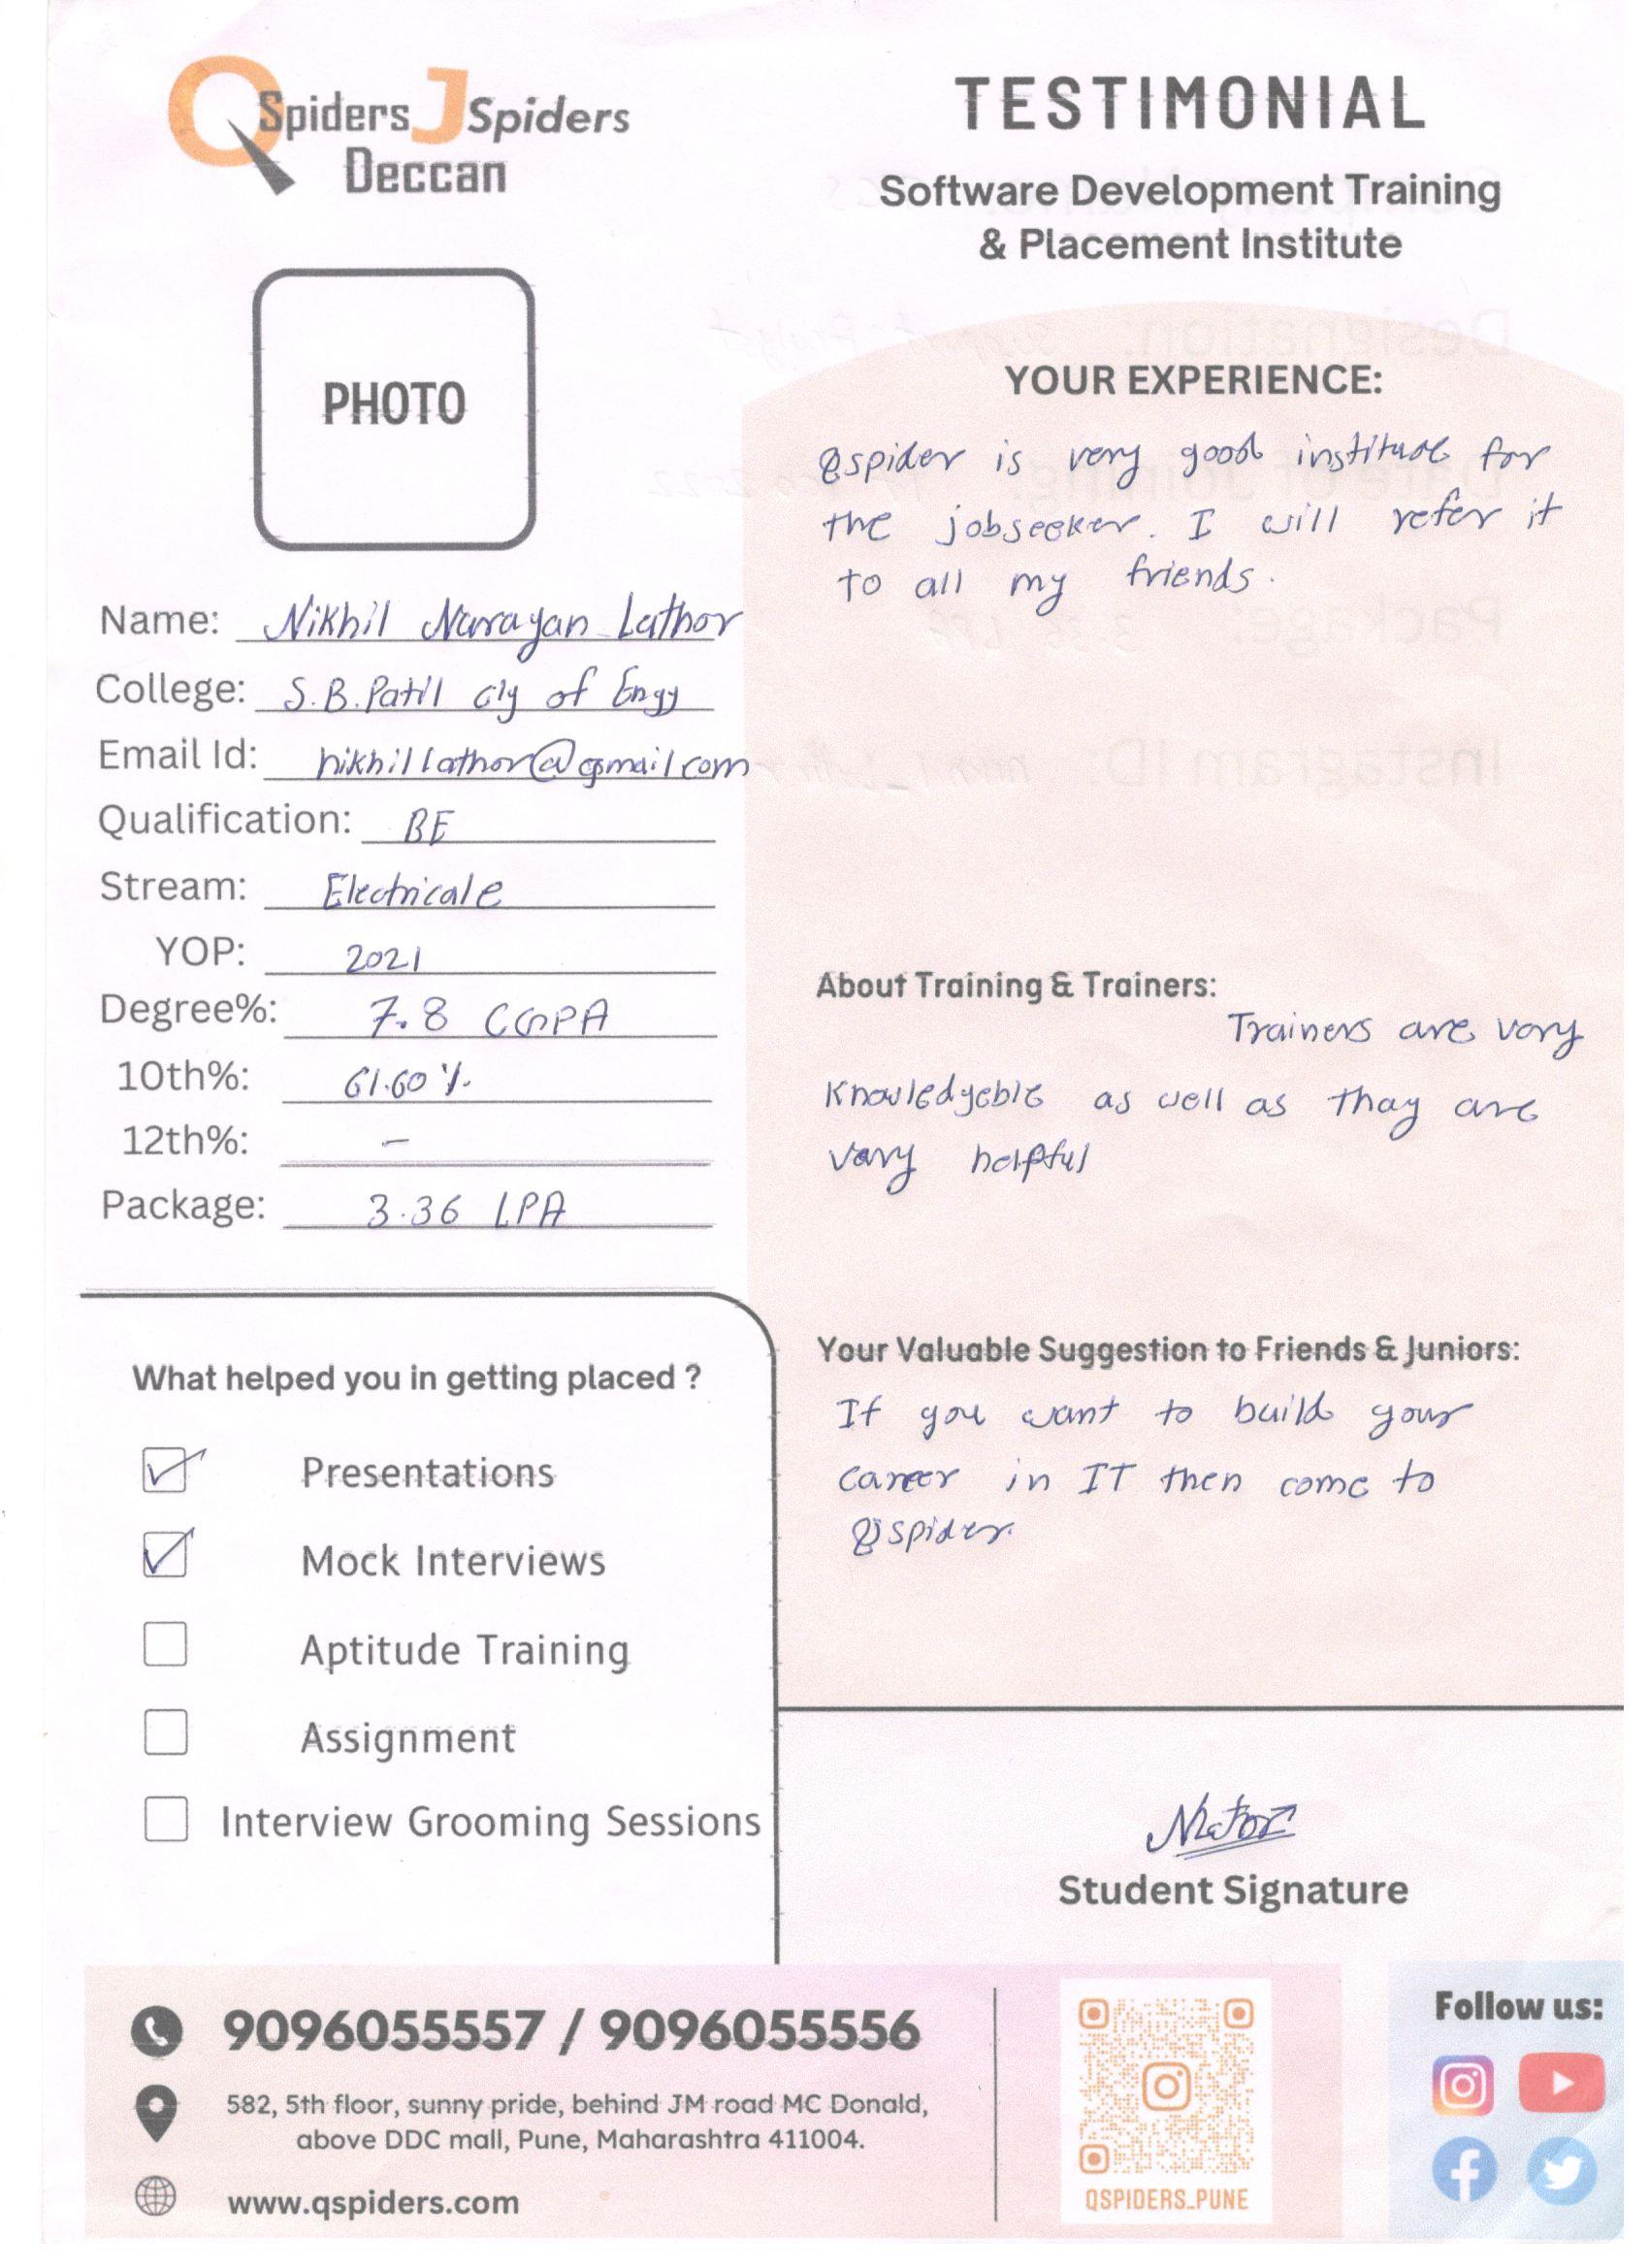 QSpiders JSpiders
Deccan
TESTIMONIAL
Software Development Training
& Placement Institute
PHOTO
Name: Nikhil Narayan Lathor
College: S.B. Patil clg of Engg
Email Id: nikhillathor@gmail.com
Qualification: BE
Stream: Electricale
YOP: 2021
Degree%: 7.8 CGPA
10th%: 61.60 %
12th%: –
Package: 3.36 LPA
What helped you in getting placed ?
Presentations
Mock Interviews
Aptitude Training
Assignment
Interview Grooming Sessions
YOUR EXPERIENCE:
Qspider is very good institude for
the jobseeker. I will refer it
to all my friends.
About Training & Trainers:
Trainers are vary
knowledgeble as well as thay are
vary helpful
Your Valuable Suggestion to Friends & Juniors:
If you want to build your
career in IT then come to
Qspider.
Student Signature
9096055557 / 9096055556
582, 5th floor, sunny pride, behind JM road MC Donald,
above DDC mall, Pune, Maharashtra 411004.
www.qspiders.com
QSPIDERS_PUNE
Follow us: